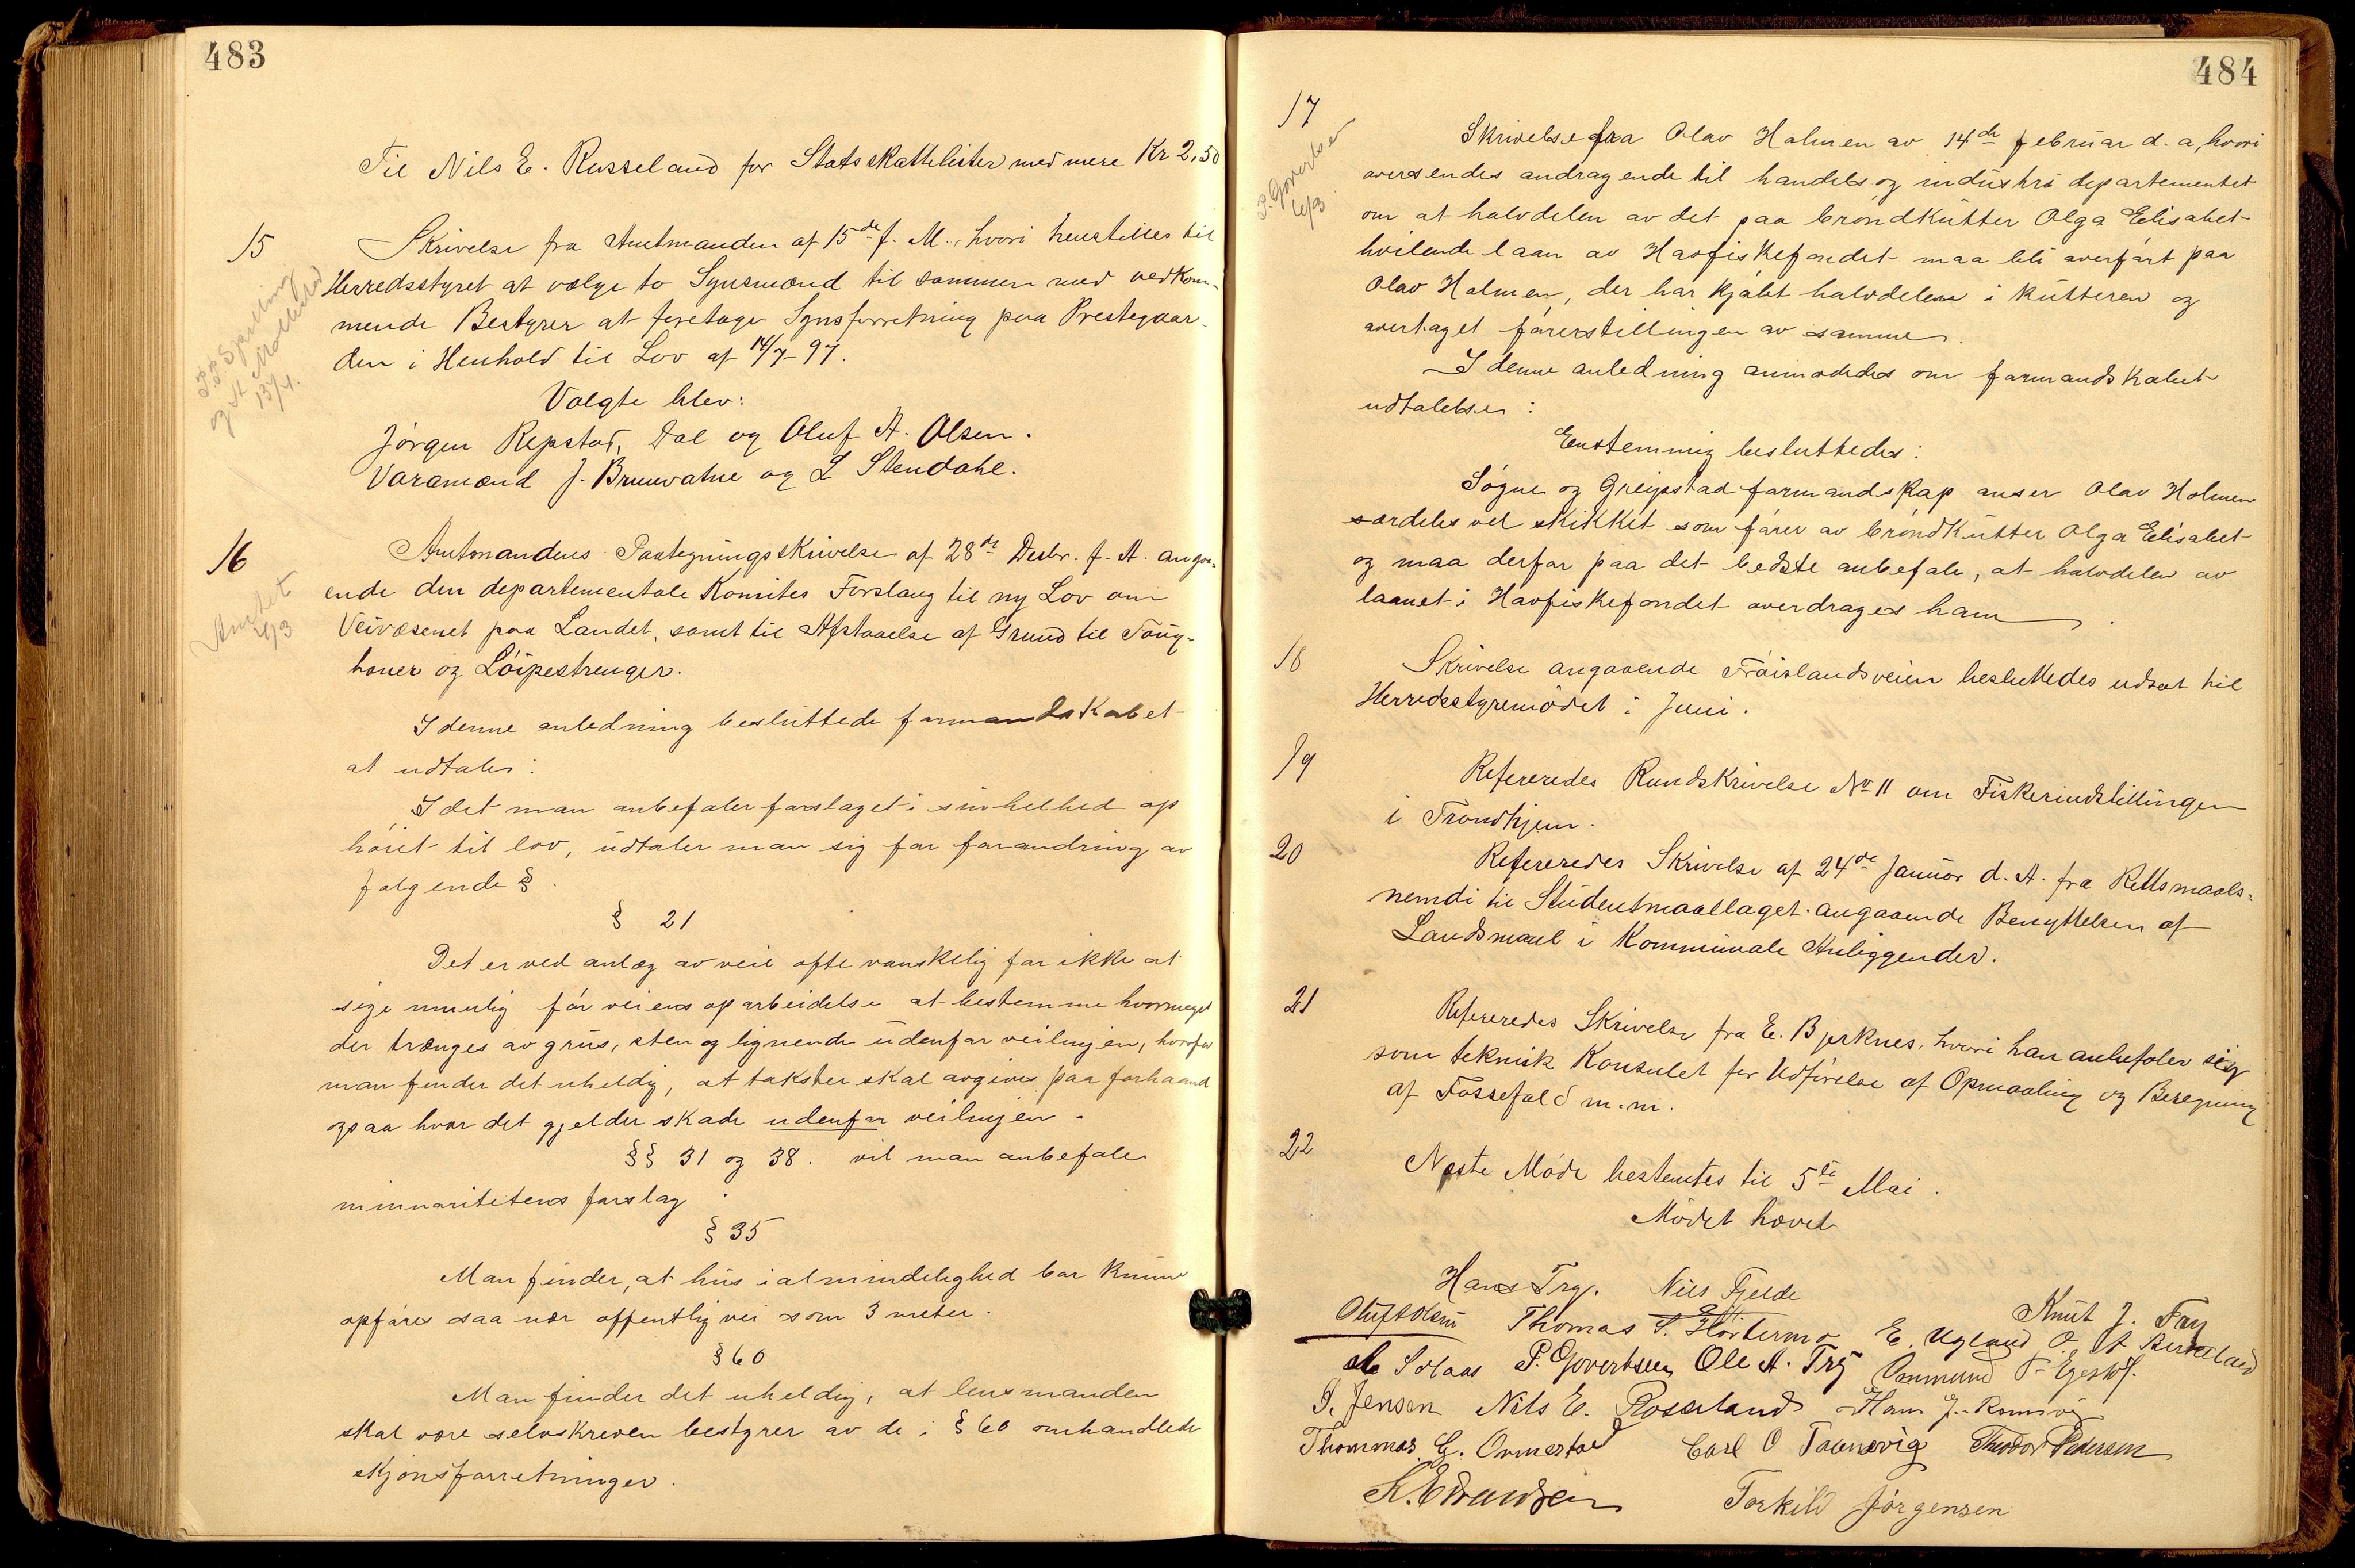 483
Til Nils E. Rosseland for Statsskattelister med mere Kr 2,50
15 Skrivelse fra Amtmanden af 15de f. M., hvori henstilles til
Herredsstyret at vælge to Synsmænd til sammen med vedkom-
mende Bestyrer at foretage Synsforretning paa Prestegaar-
den i Henhold til Lov af 14/7-97.
Valgte blev:
Jörgen Repstad, Dal og Oluf A. Olsen.
Varamænd J. Brunvatne og L Stendahl.
16 Amtmandens Paategningsskrivelse af 28de Desbr. f. A. angaa-
ende den departementale Komites Forslag til ny Lov om
Veivæsenet paa Landet, samt til Afstaaelse af Grund til Taug-
baner og Löipestrenger.
Amtet
6/3
I denne anledning besluttede formandskabet
at udtale:
I det man anbefaler forslaget i sin helhed op
höiet til lov, udtaler man sig for forandring av
følgende §.
§ 21
Det er ved anlæg av veie ofte vanskelig for ikke at
sige umulig för veiens oparbeidelse at bestemme hvormeget
der trænges av grus, sten og lignende udenfor veilinjen, hvorfor
man finder det uheldig, at takster skal avgives paa forhaand
ogsaa hvor det gjelder skade udenfor veilinjen.
§§ 31 og 38. vil man anbefale
minnoritetens forslag.
§ 35
Man finder, at hus i almindelighed bør kunne
opføres saa nær offentlig vei som 3 meter.
§ 60
Man finder det uheldig, at lensmanden
skal være selvskreven bestyrer av de i § 60 omhandlede
skjønsforretninger.
484
17 Skrivelse fra Olav Holmen av 14de februar d. a, hvori
oversendes andragende til handels og industri departementet
om at halvdelen av det paa bröndkutter Olga Elisabet
hvilende laan av Havfiskefondet maa bli overført paa
Olav Holmen, der har kjøbt halvdelen i kutteren og
overtaget førerstillingen av samme.
P. Govertsen
6/3
I denne anledning anmodedes om formandskabets
udtalelse:
Enstemmig besluttedes:
Søgne og Greipstad formandskap anser Olav Holmen
særdeles vel skikket som fører av bröndkutter Olga Elisabet
og maa derfor paa det bedste anbefale, at halvdelen av
laanet i Havfiskefondet overdrages ham.
18 Skrivelse angaaende Fröislandsveien besluttedes udsat til
Herredsstyremödet i Juni.
19 Refereredes Rundskrivelse No 11 om Fiskeriudstillingen
i Trondhjem.
20 Refereredes Skrivelse af 24de Januar d. A. fra Rettsmaals-
nemdi til Studentmaallaget angaaende Benyttelsen af
Landsmaal i Kommunale Anliggender.
21 Refereredes Skrivelse fra E. Bjerknes, hvori han anbefaler sig
som teknisk Konsulet for Udförelse af Opmaaling og Beregning
af Fossefald m.m.
22 Næste Möde bestemtes til 5te Mai.
Mödet hævet
Hans Try. Nils Fjelde
Knut J. Try
Oluf A Olsen Thomas T. Hörtermo E. Ugland O. A Berkeland
P. Govertsen Ole A. Try Ommund
P. Jensen Nils E. Rosseland Hans J. Romsvig
Thommas G. Ormestad Carl O Taanevig Theodor Pedersen
K. Edvardsen Torkild Jörgensen